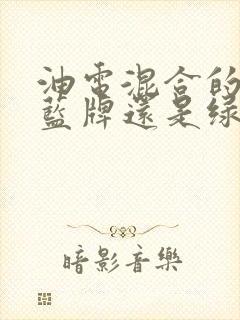 油電混合的
藍牌還是綠
暗影音樂